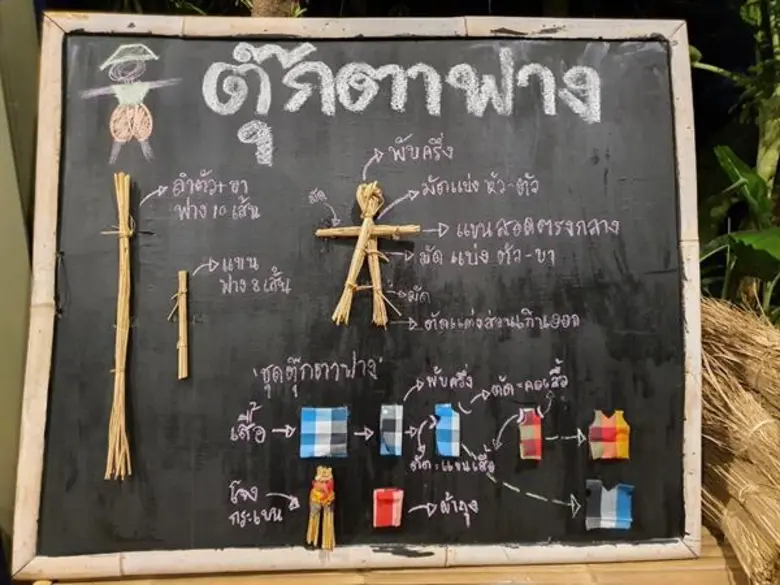 ตุ๊กตาฟาง
ลำตัว+ขา
ฟาง 10 เส้น
แขน
ฟาง 8 เส้น
พับครึ่ง
มัดแบ่ง หัว-ตัว
มัด
แขนสอดตรงกลาง
มัด แบ่ง ตัว-ขา
มัด
ตัดแต่งส่วนเกินออก
"ชุดตุ๊กตาฟาง"
พับครึ่ง
ตัด=คอเสื้อ
เสื้อ
ตัด=แขนเสื้อ
โจง
กระเบน
ผ้าถุง